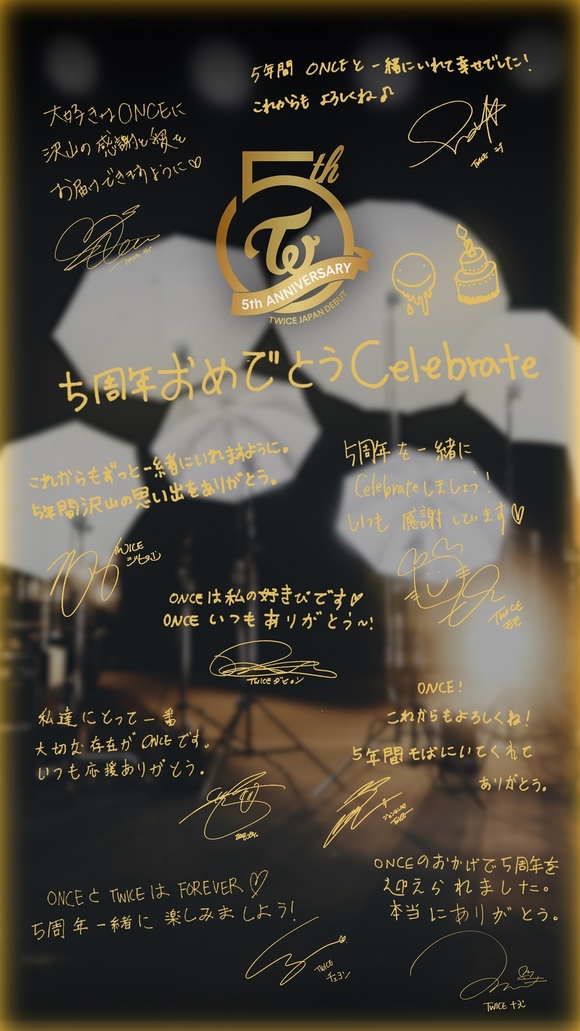 5年間 ONCEと一緒にいれて幸せでした!
これからも よろしくね♪
TWICE
大好きなONCEに
沢山の感謝と愛を
お届けできますように♡
TWICE
5th
TW
5th ANNIVERSARY
TWICE JAPAN DEBUT
5周年おめでとうCelebrate
これからもずっと一緒にいれますように。
5年間沢山の思い出をありがとう。
TWICE
ジヒョ
5周年を一緒に
Celebrateしましょう!
いつも 感謝しています♡
TWICE
モモ
ONCEは私の好きぴです♡
ONCE いつもありがとう〜!
TWICE ダヒョン
私達にとって一番
大切な存在がONCEです。
いつも応援ありがとう。
ONCE!
これからもよろしくね!
5年間そばにいてくれて
ありがとう。
ONCEとTWICEは FOREVER♡
5周年一緒に楽しみましよう!
TWICE
チェヨン
ONCEのおかげで5周年を
迎えられました。
本当にありがとう。
TWICE ナヨン